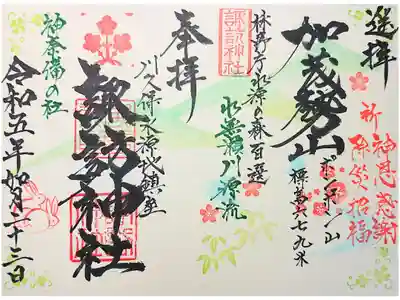 遥拝
祈 神恩感謝
除災招福
加茂勢山
ポンポン山
標高六七九米
林野庁水源の森百選
水無瀬川源流
諏訪神社
奉拝
川久保水源地鎮座
諏訪神社
神奈備の杜
令和五年如月二十三日